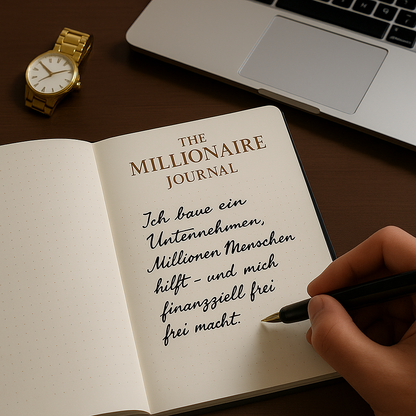 THE
MILLIONAIRE
JOURNAL
Ich baue ein
Unternehmen,
Millionen Menschen
hilft – und mich
finanzziell frei
frei macht.